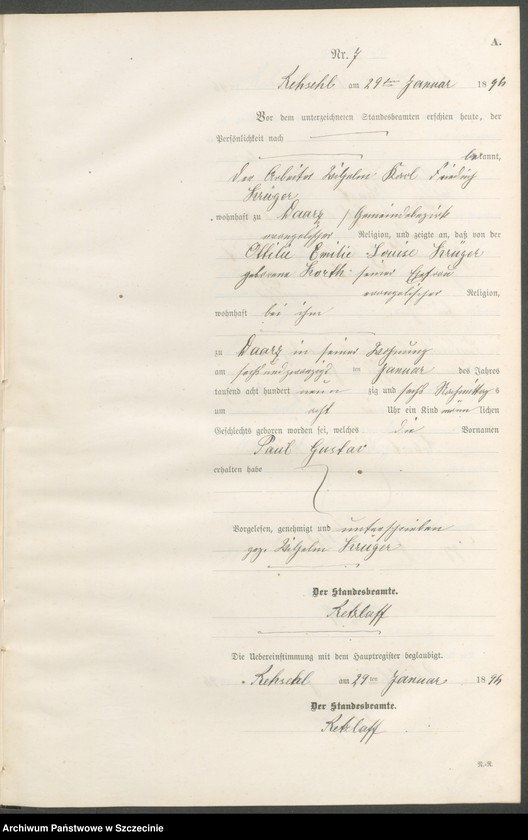 A.
Nr. 7
Kehsehl am 29ten Januar 1896
Vor dem unterzeichneten Standesbeamten erschien heute, der
Persönlichkeit nach
bekannt,
Der Arbeiter Wilhelm Karl Friedrich
Krüger
wohnhaft zu Daarz / Gemeindebezirk
evangelischer Religion, und zeigte an, daß von der
Ottilie Emilie Louise Krüger
geborene Korth seiner Ehefrau
evangelischer Religion,
wohnhaft bei ihm
zu Daarz in seiner Wohnung
am sechsundzwanzigs ten Januar des Jahres
tausend acht hundert neun zig und sechs Nachmittags
um acht Uhr ein Kind männlichen
Geschlechts geboren worden sei, welches die Vornamen
Paul Gustav
erhalten habe
Vorgelesen, genehmigt und unterschrieben
gez. Wilhelm Krüger
Der Standesbeamte.
Retzlaff
Die Uebereinstimmung mit dem Hauptregister beglaubigt.
Kehsehl am 29ten Januar 1896
Der Standesbeamte.
Retzlaff
N.-R.
Archiwum Państwowe w Szczecinie